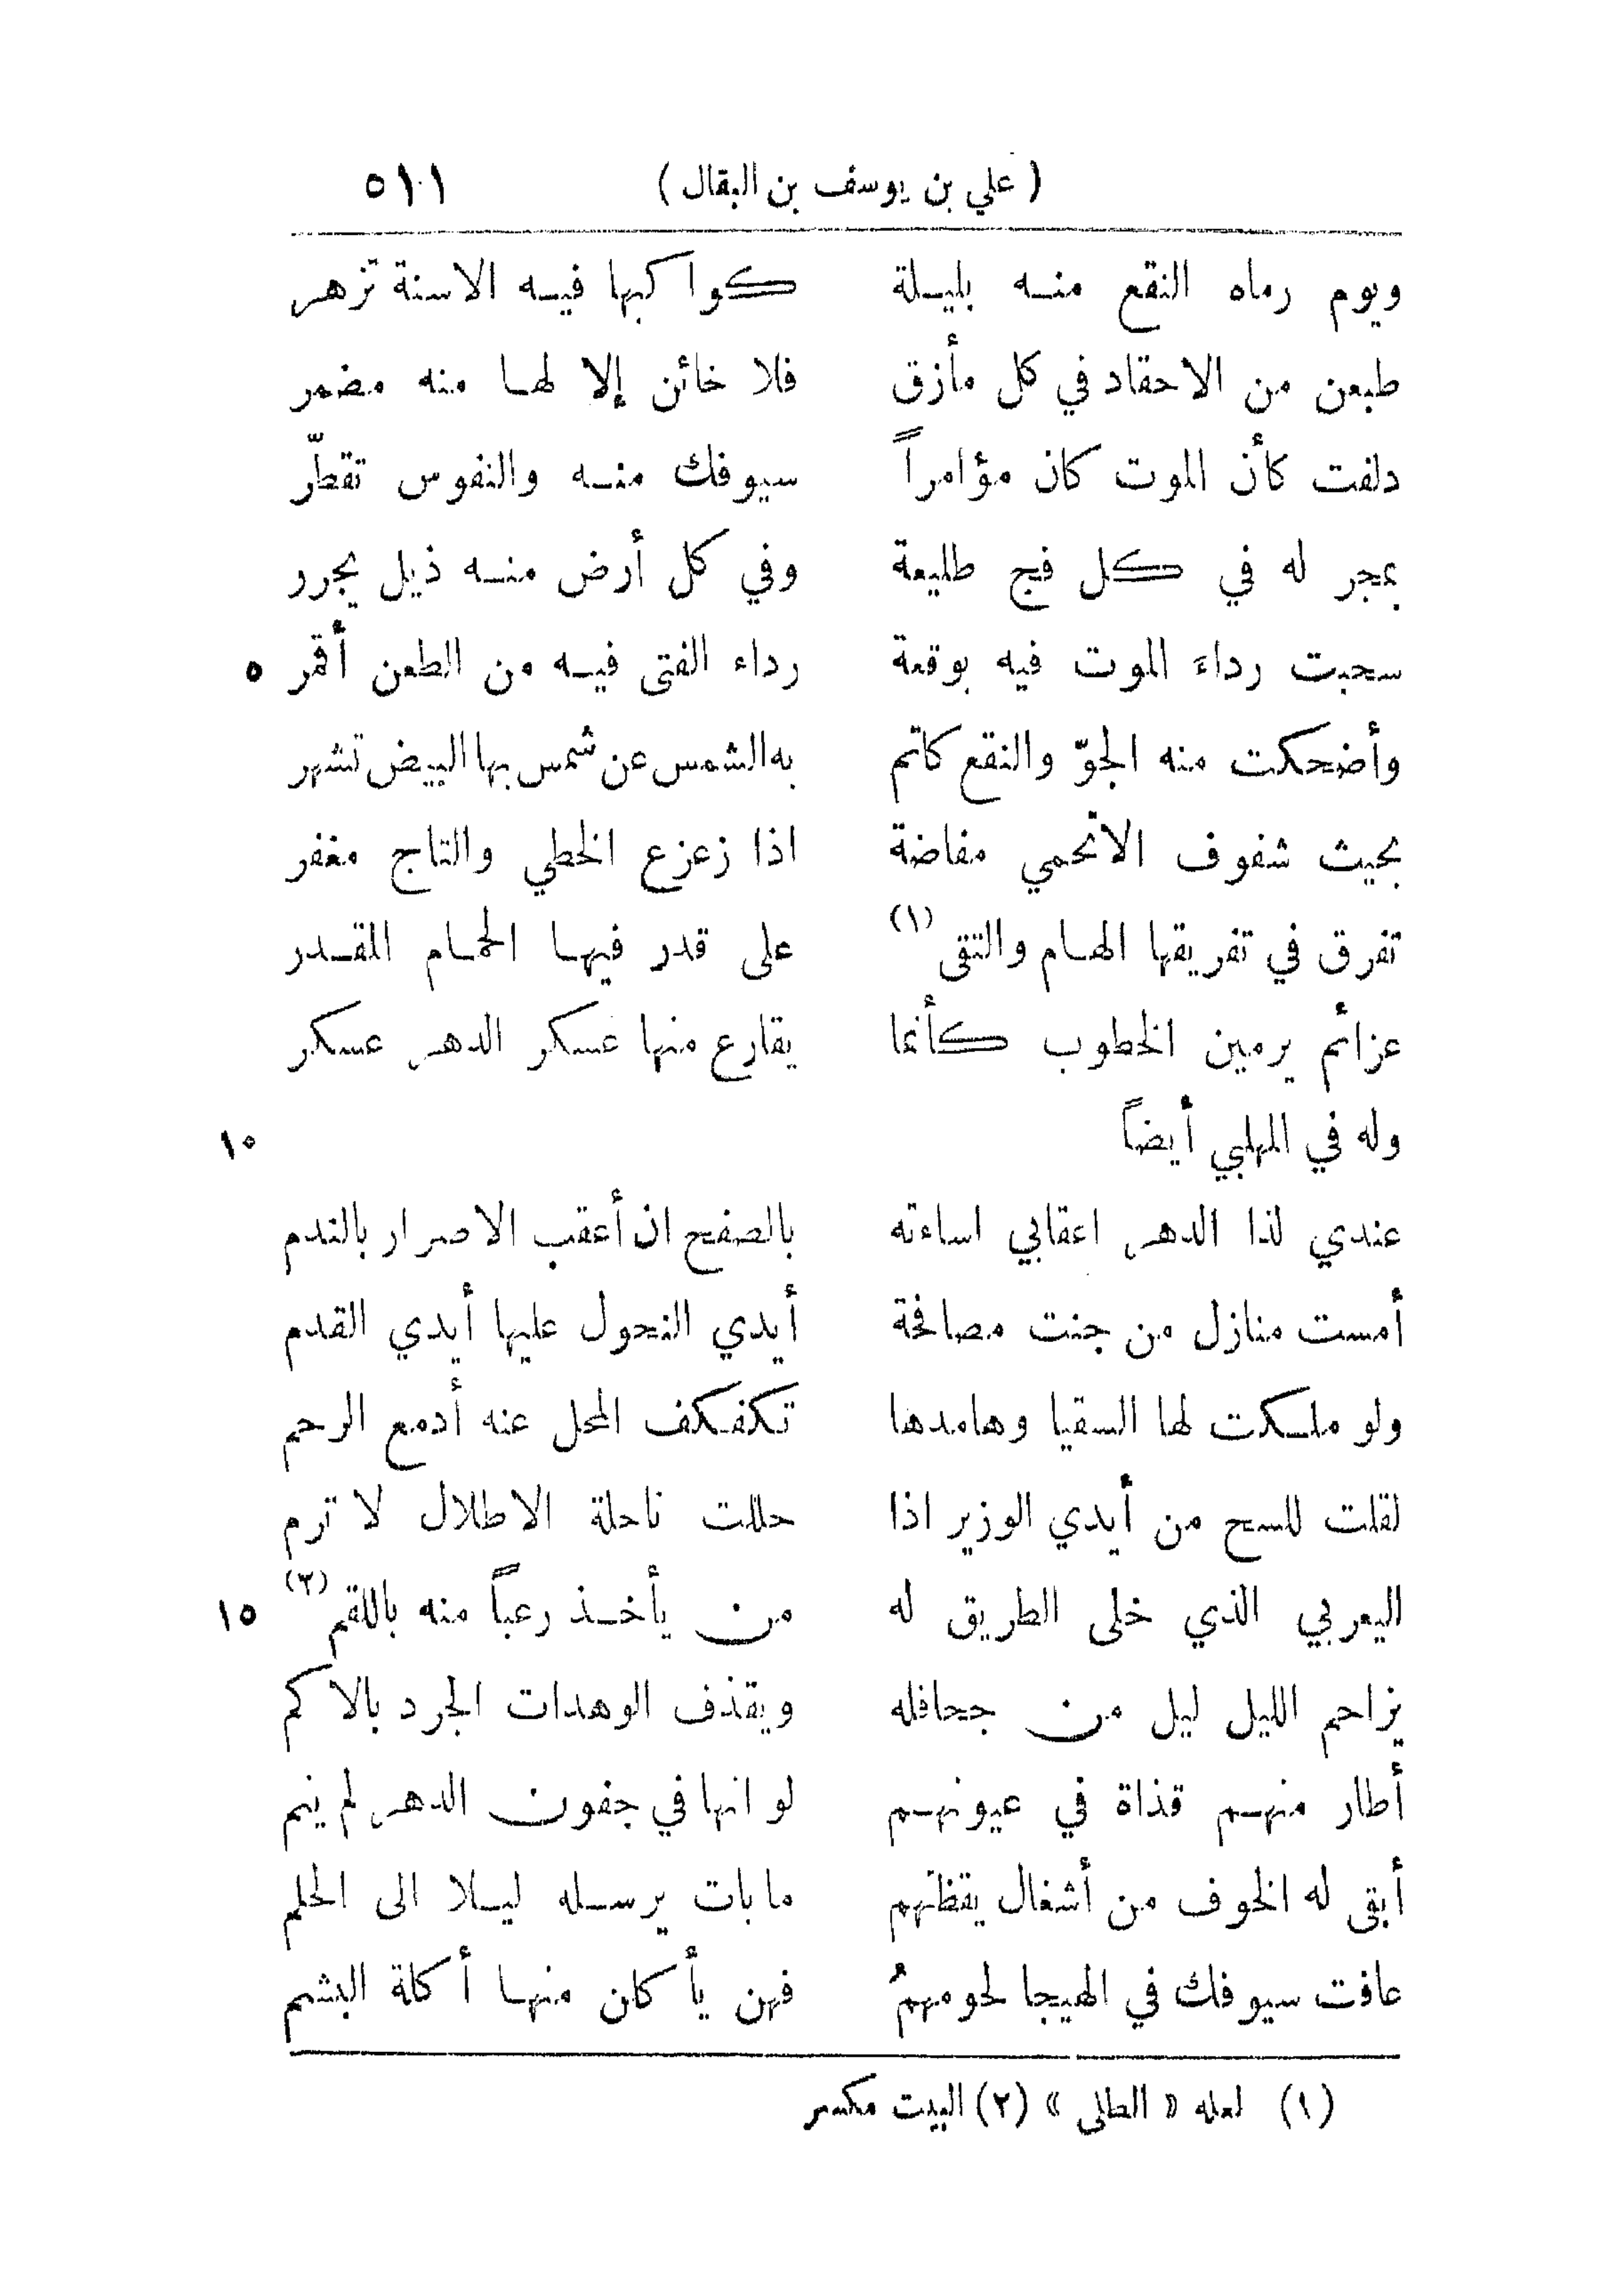 ( علي بن يوسف بن البقال ) ٥١١
ويوم رماه النقع منه بليلة كواكبها فيه الاسنة تزهر
طبعن من الاحقاد في كل مأزق فلا خائن إلا لها منه مضمر
دلفت كأن الموت كان مؤامراً سيوفك منه والنفوس تقطّر
بمجر له في كل فج طليعة وفي كل أرض منه ذيل يجرر
سحبت رداءَ الموت فيه بوقعة رداء الفتى فيه من الطعن أقمر ٥
وأضحكت منه الجوّ والنقع كاتم به الشمس عن شمس بها البيض تشهر
بحيث شفوف الاتحمي مفاضة اذا زعزع الخطي والتاج مغفر
تفرق في تفريقها الهام والتقى (١) على قدر فيها الحمام المقدر
عزائم يرمين الخطوب كأنما يقارع منها عسكر الدهر عسكر
وله في المهلبي أيضاً ١٠
عندي لذا الدهر اعقابي اساءته بالصفح ان أعقب الاصرار بالندم
أمست منازل من جنت مصافحة أيدي النحول عليها أيدي القدم
ولو ملكت لها السقيا وهامدها تكفكف المحل عنه أدمع الرحم
لقلت للسح من أيدي الوزير اذا حللت ناحلة الاطلال لا ترم
اليعربي الذي خلى الطريق له من يأخذ رعباً منه باللقم (٢) ١٥
يزاحم الليل ليل من جحافله ويقذف الوهدات الجرد بالاكم
أطار منهم قذاة في عيونهم لو انها في جفون الدهر لم ينم
أبقى له الخوف من أشغال يقظتهم ما بات يرسله ليلا الى الحلم
عافت سيوفك في الهيجا لحومهمُ فهن يأكلن منها أكلة البشم
(١) لعله « الطلى » (٢) البيت مكسر